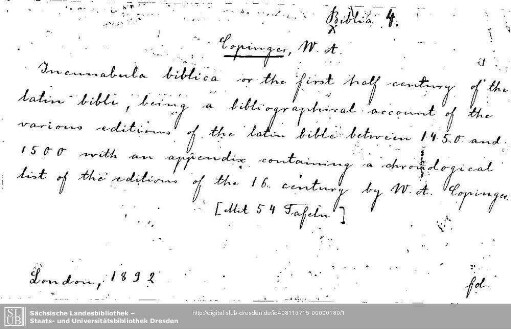 Biblia 4.
Copinger, W. A.
Incunabula biblica or the first half century of the
latin bible, being a bibliographical account of the
various editions of the latin bible between 1450 and
1500 with an appendix containing a chronological
list of the editions of the 16. century by W. A. Copinger.
[Mit 54 Tafeln]
London, 1892
fol.
SLUB
Sächsische Landesbibliothek –
Staats- und Universitätsbibliothek Dresden